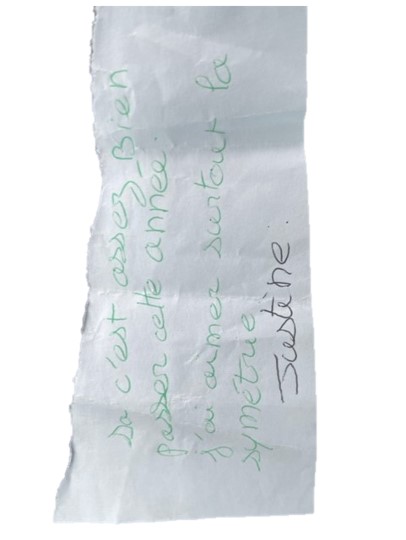 Sa c'est assez Bien
passer cette année.
j'ai aimer surtout la
symétrie
Justine.